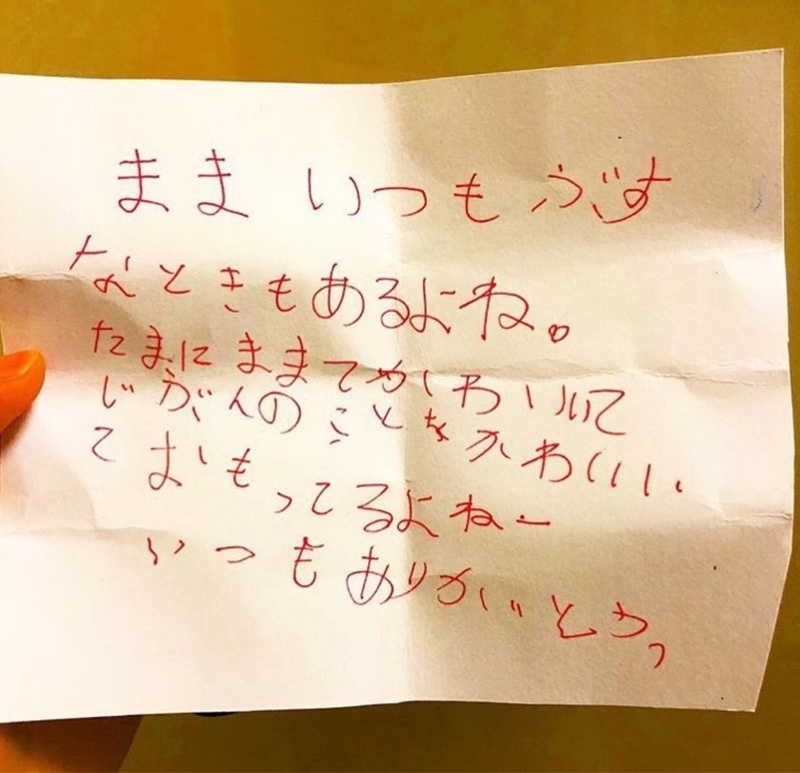 まま いつもぶす
なときもあるよね。
たまにままてかわいいて
じぶんのことをかわいい、
ておもってるよねー
いつもありがとう。